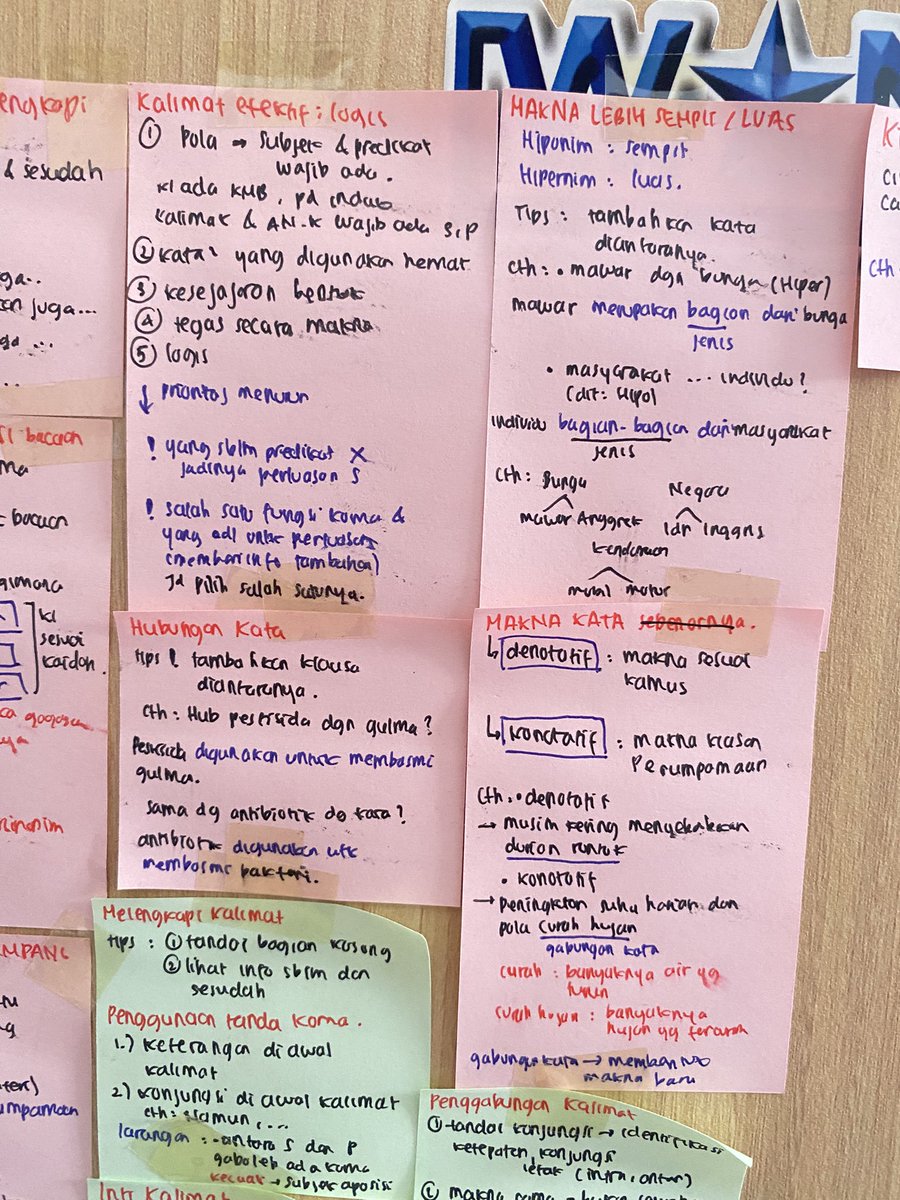 engkapi
& sesudah
juga...
bacaan
kl
sesuai
Kalimat efektif : logis
① Pola → Subjek & predikat
wajib ada.
kl ada KMB, pd induk
kalimat & AN.K wajib ada S,P
② kata² yang digunakan hemat
③ kesejajaran bentuk
④ tegas secara makna
⑤ logis
↓ prioritas menurun
! yang sblm predikat X
jadinya perluasan S
! salah satu fungsi koma &
yang adl untuk perluasan
(memberi info tambahan)
Jd pilih salah satunya.
MAKNA LEBIH SEMPIT / LUAS
Hiponim : sempit
Hipernim : luas.
Tips : tambahkan kata
diantaranya.
cth : • mawar dgn bunga (Hiper)
mawar merupakan bagian dari bunga
jenis
• masyarakat ... individu?
individu bagian-bagian dari masyarakat
jenis
Cth : Bunga
Negara
mawar Anggrek
Idn Inggris
kendaraan
mobil motor
Hubungan Kata
tips ! tambahkan klausa
diantaranya.
Cth : Hub pestisida dgn gulma?
Pestisida digunakan untuk membasmi
gulma.
sama dg antibiotik dg kata?
antibiotik digunakan utk
membasmi bakteri.
MAKNA KATA sebenarnya.
↳ denotatif : makna sesuai
kamus
↳ konotatif : makna kiasan
Perumpamaan
Cth : • denotatif
→ musim kering menyebabkan
durian rontok
• konotatif
→ Peningkatan suhu harian dan
pola curah hujan
gabungan kata
curah : banyaknya air yg
turun
curah hujan : banyaknya
hujan yg tercurah
gabungan kata →
makna baru
Melengkapi Kalimat
tips : ① tandai bagian kosong
② lihat info sblm dan
sesudah
Penggunaan tanda koma.
1.) keterangan di awal
kalimat
2.) konjungsi di awal kalimat
cth : Namun, ...
larangan : - antara S dan P
gaboleh ada koma
kecuali → subjek aposisi
Inti Kalimat
Penggabungan Kalimat
① tandai konjungsi → identifikasi
ketepatan konjungsi
letak (intra, antar)